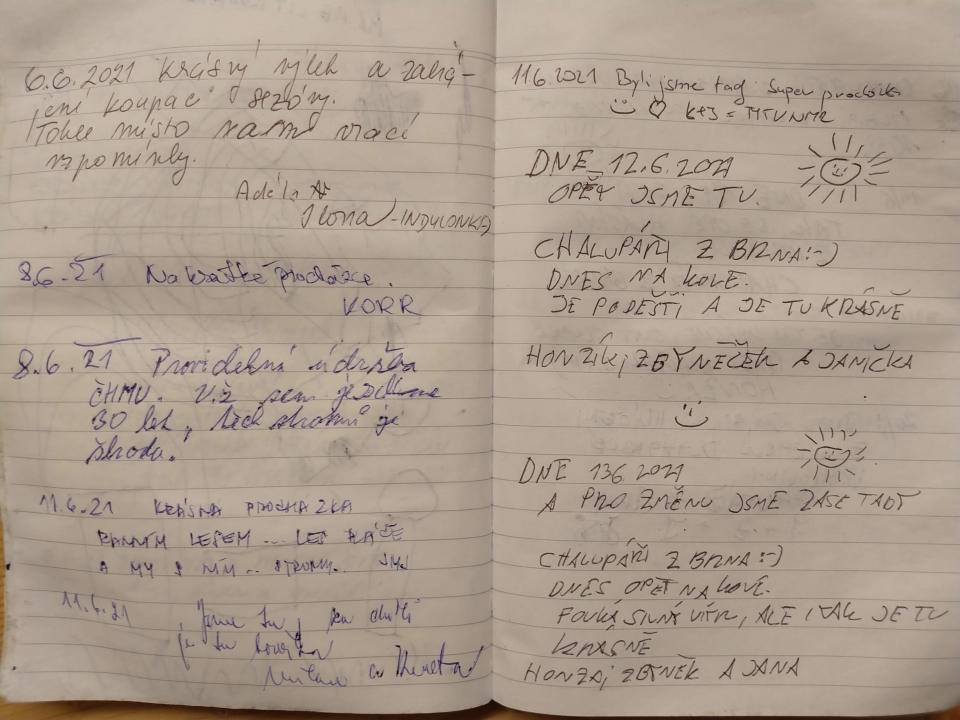 6.6.2021 Krásný výlet a zahá-
jení koupací sezóny.
Tohle místo vrací
vzpomínky.
Adéla
Ilona-INDULONKA)
8.6.21 Na krátké procházce.
KORR
8.6.21 Pravidelná údržba
ČHMÚ. Už sem jezdíme
30 let, těch stromů je
škoda.
11.6.21 KRÁSNÁ PROCHÁZKA
RANNÍM LESEM... LES PLÁČE
A MY S NÍM.. STROMY..
11.6.21 Jsme tu,
je tu
a
11.6.2021 Byli jsme tady super procházka
K+J =
DNE 12.6.2021
OPĚT JSME TU.
CHALUPÁŘI Z BRNA:-)
DNES NA KOLE.
JE PODEŠTI A JE TU KRÁSNĚ
HONZÍK, ZBYNEČEK A JANIČKA
DNE 13.6.2021
A PRO ZMĚNU JSME ZASE TADY
CHALUPÁŘI Z BRNA:-)
DNES OPĚT NA KOLE.
FOUKÁ SILNÝ VÍTR, ALE I TAK JE TU
KRÁSNĚ
HONZA, ZBYNĚK A JANA